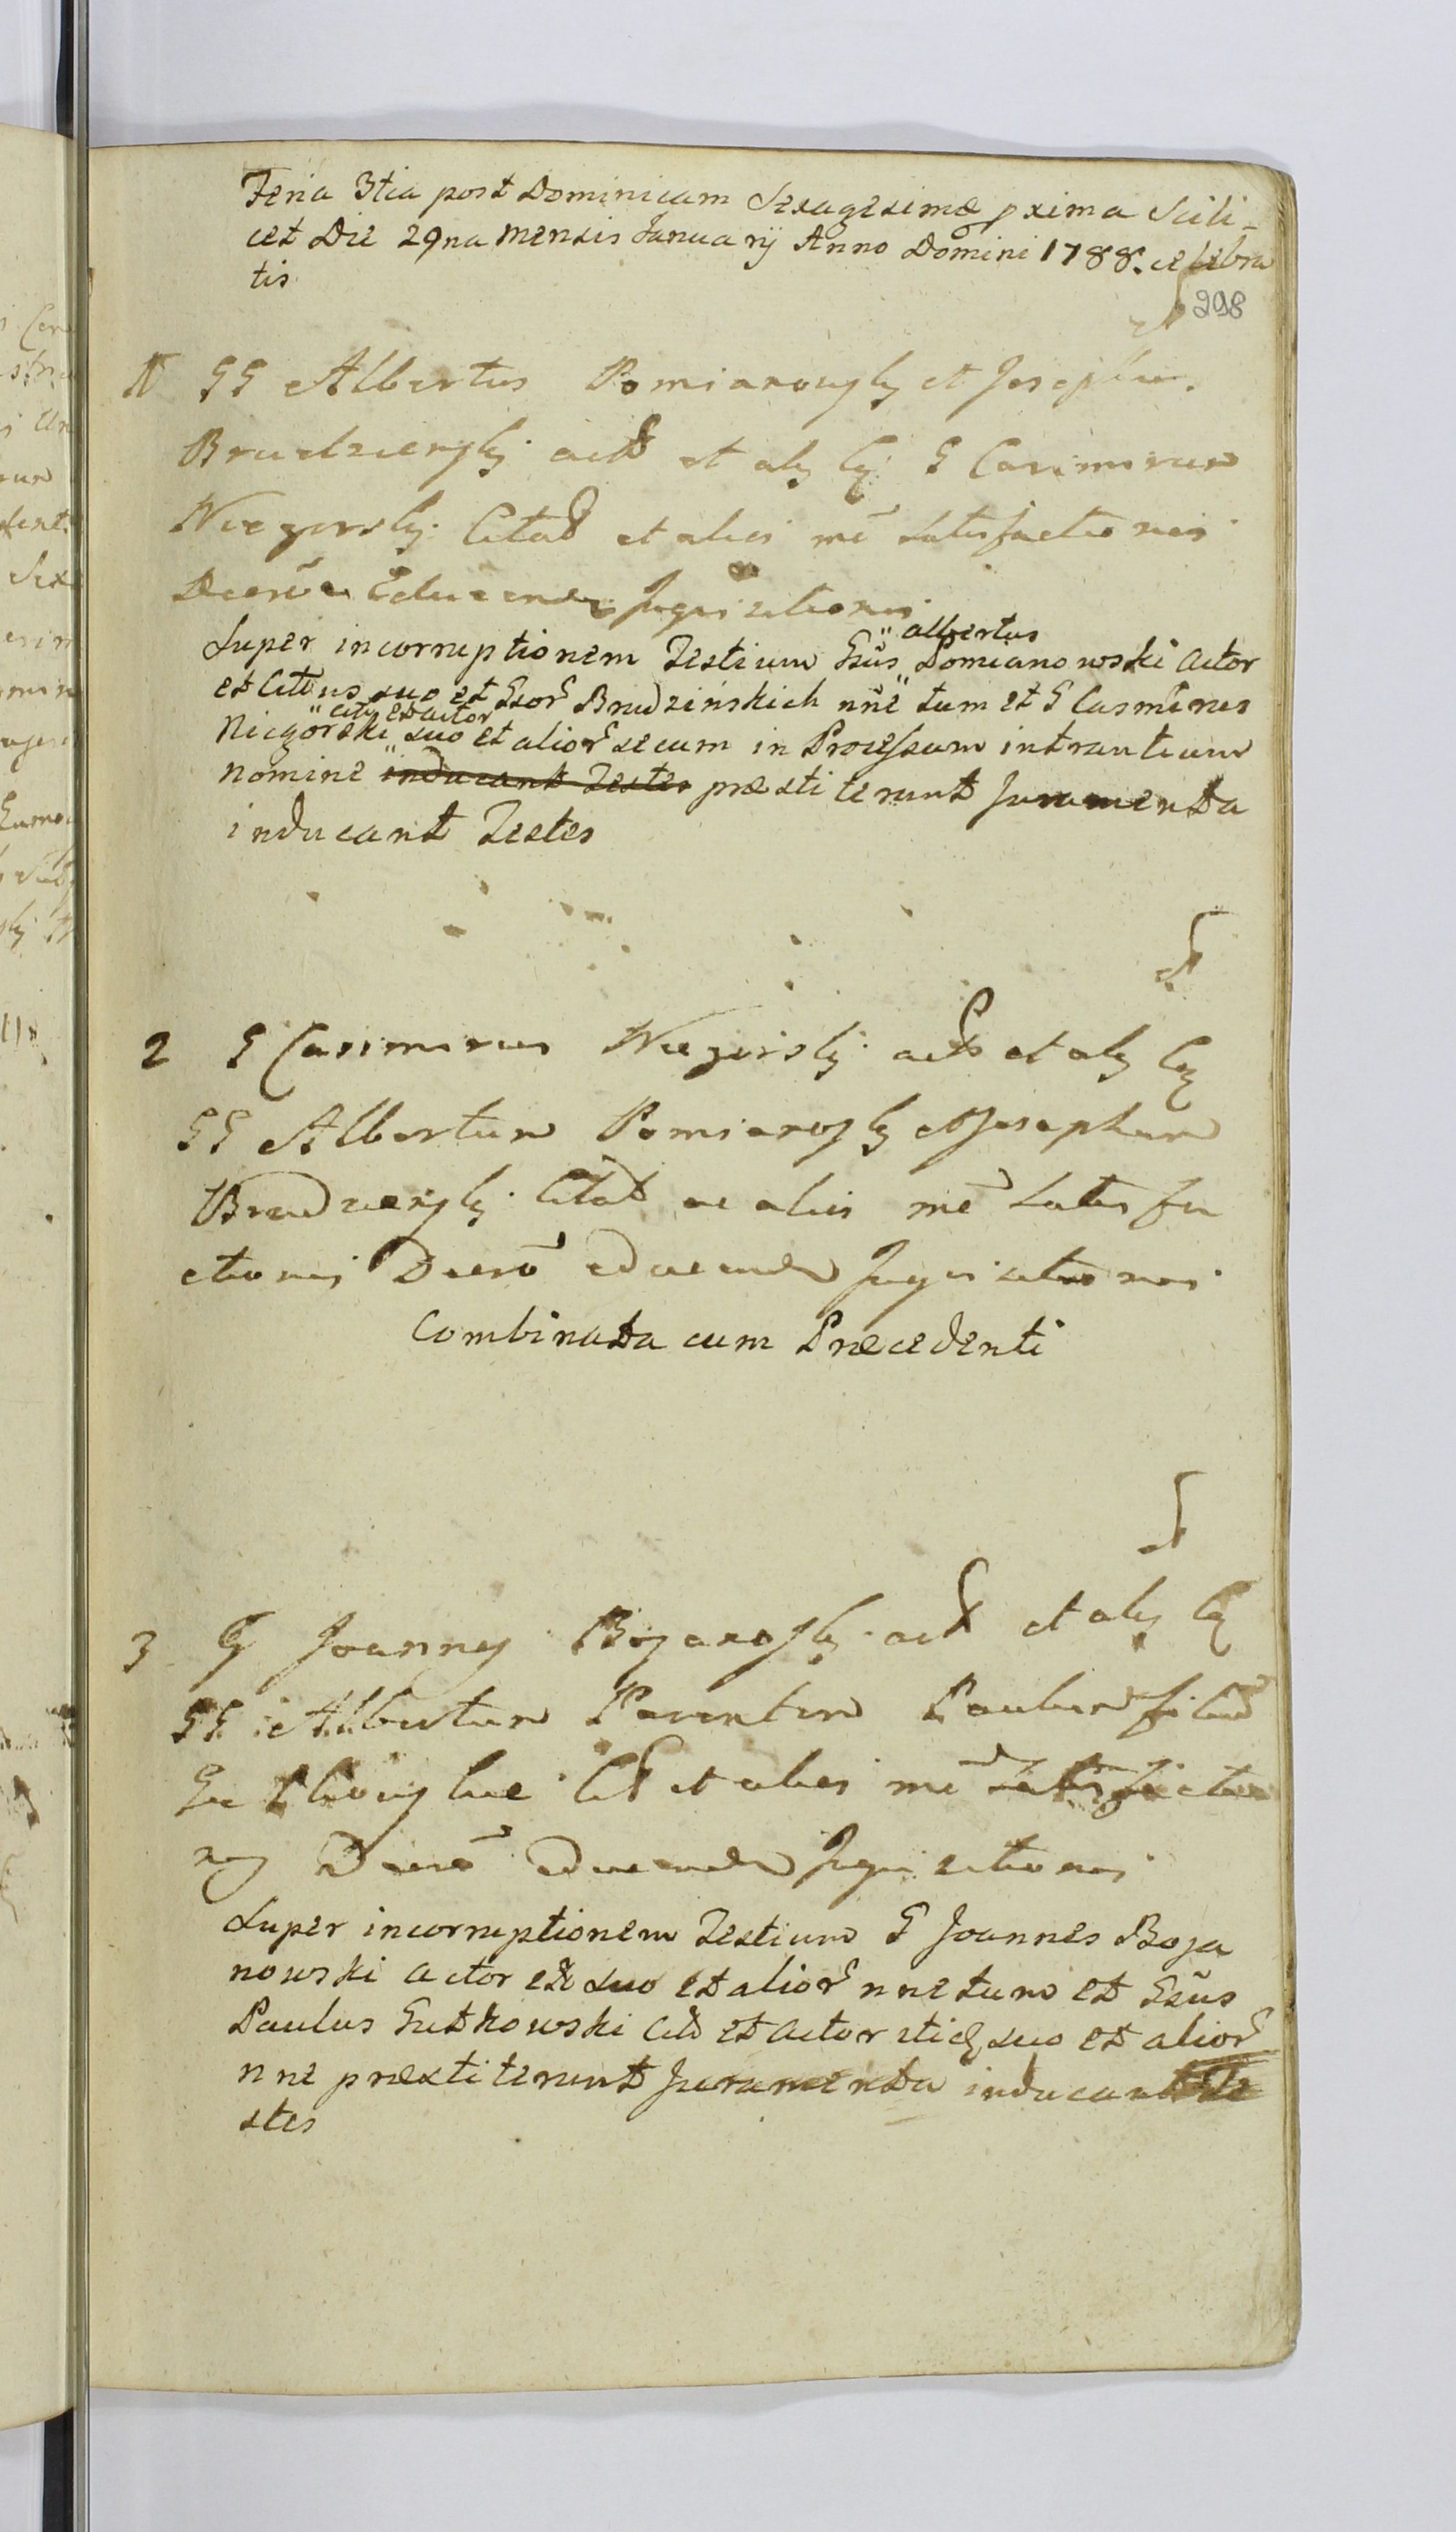 Feria 3tia post Dominicam Sexagesimæ pxima Scili-
cet Die 29na Mensis Januarij Anno Domini 1788. celebra
tis
298
GG Albertus Pomianowsky et Josephus
Brudziensky act et aly Cz G Casimirum
Niegorsky Citat et alios mē Satisfactionis
Decrō Educendæ Inquisitionis
Super incorruptionem Testium Gsūs " albertus
Pomianowski Actor
et Citus suo et Gsor Brudzińskich nnē tum et G Casmirus
Niegorski " citus et actor
suo et alior secum in Processum intrantium
nomine inducant Testes præstiterunt Juramenta
inducant Testes
2 G Casimirus Niegorsky act et aly Cz
GG Albertum Pomianosky et Josephum
Brudziensky Citat ac alios mē Satisfa
ctionis Decrō Educendæ Inquisitionis
Combinata cum Præcedenti
3 G Joannes Bojanosky act et aly Cz
GG Albertum Parentem Paulum filium
Cit et alios mē Satisfactio
nis Decrō Educendæ Inquisitionis
Super incorruptionem Testium G Joannes Boja
nowski Actor et suo et alior nne tum et Gsūs
Paulus Gutkowski Cit et Actor suo et alior
nne præstiterunt Juramenta inducant Te
stes